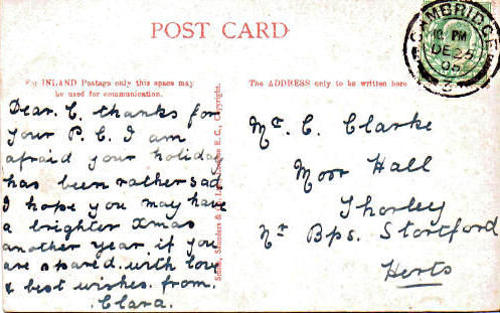 POST CARD
CAMBRIDGE
10. PM
DE 25
05
For INLAND Postage only this space may
be used for communication.
The ADDRESS only to be written here
Dear. C. thanks for
your P. C. I am
afraid your holiday
has been rather sad
I hope you may have
a brighter Xmas
another year if you
are spared. with love
& best wishes. from.
Clara.
Mr. C. Clarke
Moor Hall
Thorley
Nr Bps. Stortford
Herts
Saunders & Co. London E. C., Copyright.